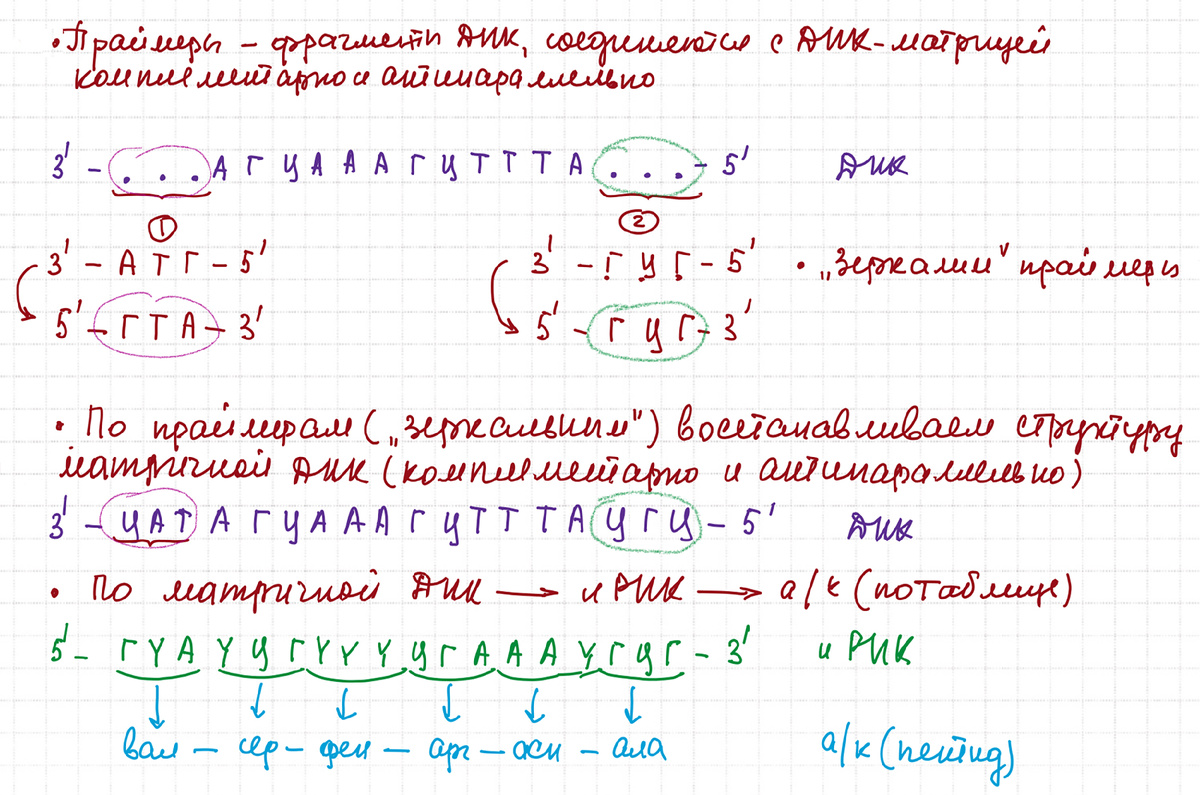 • Праймеры – фрагменты ДНК, соединяются с ДНК-матрицей
комплементарно и антипараллельно
3' – . . . А Г Ц А А А Г Ц Т Т Т А . . . – 5' ДНК
① ②
3' – А Т Г – 5' 3' – Г Ц Г – 5' • „Зеркалим" праймеры
5' – Г Т А – 3' 5' – Г Ц Г – 3'
• По праймерам („зеркальным") восстанавливаем структуру
матричной ДНК (комплементарно и антипараллельно)
3' – Ц А Т А Г Ц А А А Г Ц Т Т Т А Ц Г Ц – 5' ДНК
• По матричной ДНК → иРНК → а/к (по таблице)
5' – Г У А У Ц Г У У У Ц Г А А А У Г Ц Г – 3' иРНК
вал – сер – фен – арг – асн – ала а/к (пептид)